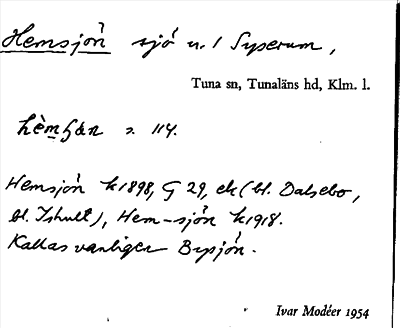 Hemsjön sjö n. / Syserum,
Tuna sn, Tunaläns hd, Klm. l.
s. 114.
Hemsjön k 1898, G 29, ek (bl. Dalsebo,
bl. Ishult), Hem-sjön k 1918.
Kallas vanligen Bysjön.
Ivar Modéer 1954